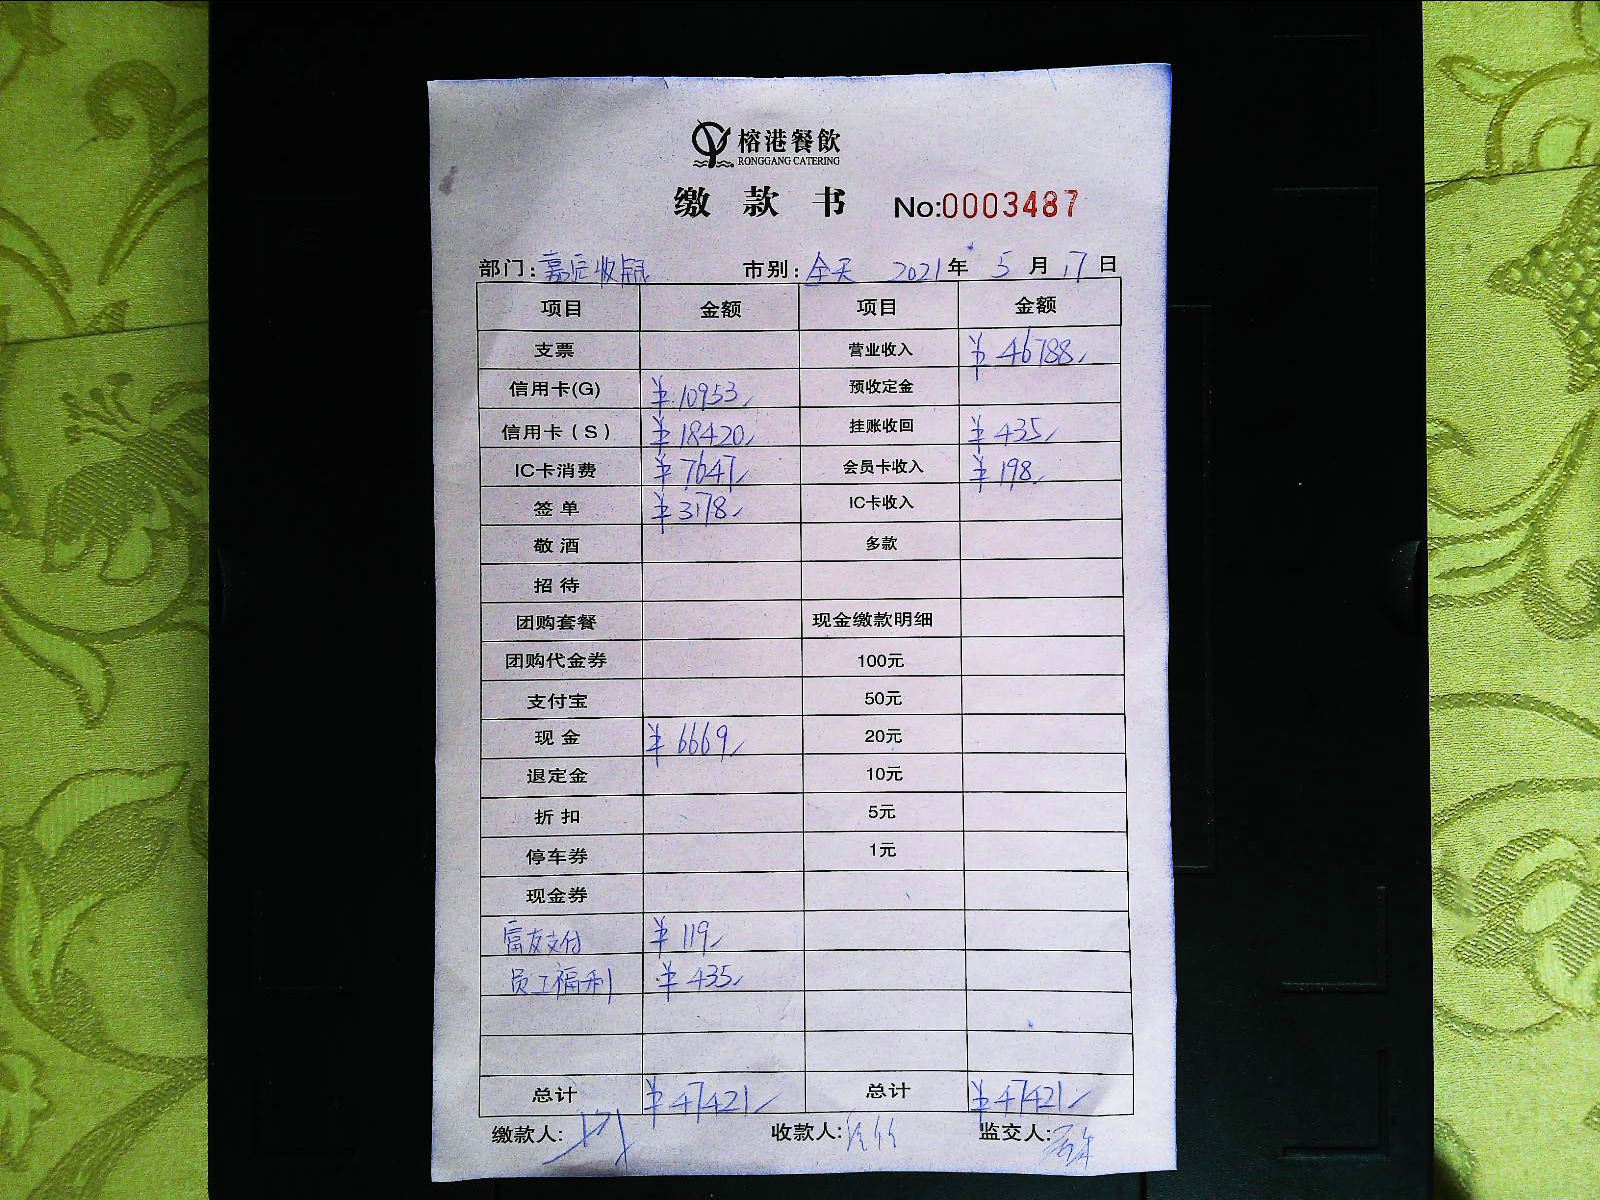 榕港餐飲
RONGGANG CATERING
缴款书 No:0003487
部门: 市别:全天 2021年 5月 17日
项目 金额 项目 金额
支票 营业收入 ¥46788
信用卡(G) ¥10953 预收定金
信用卡(S) ¥18420 挂账收回 ¥435
IC卡消费 ¥7647 会员卡收入 ¥198
签单 ¥3178 IC卡收入
敬酒 多款
招待
团购套餐 现金缴款明细
团购代金券 100元
支付宝 50元
现金 ¥6669 20元
退定金 10元
折扣 5元
停车券 1元
现金券
富友支付 ¥119
员工福利 ¥435
总计 ¥47421 总计 ¥47421
缴款人: 收款人: 监交人: